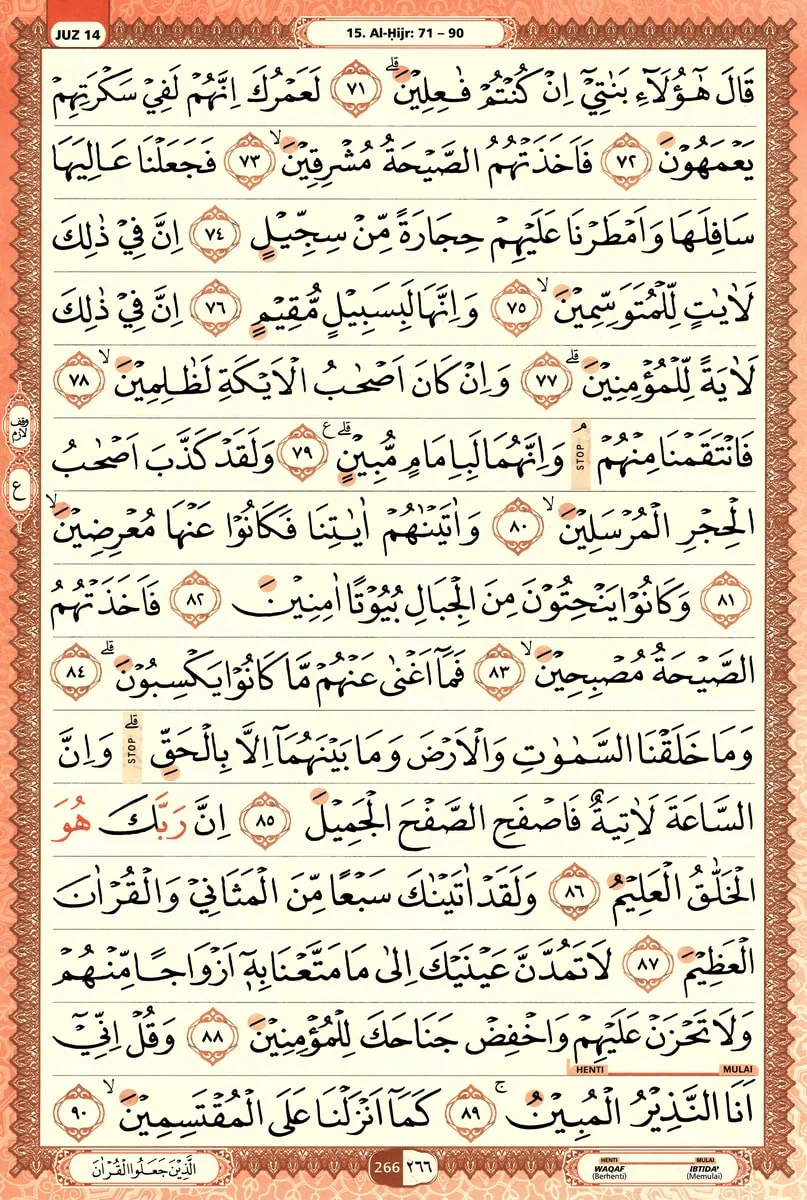 JUZ 14
15. Al-Ḥijr: 71 – 90
قَالَ هٰٓؤُلَاۤءِ بَنٰتِيْٓ اِنْ كُنْتُمْ فٰعِلِيْنَۗ ٧١ لَعَمْرُكَ اِنَّهُمْ لَفِيْ سَكْرَتِهِمْ
يَعْمَهُوْنَ ٧٢ فَاَخَذَتْهُمُ الصَّيْحَةُ مُشْرِقِيْنَۙ ٧٣ فَجَعَلْنَا عَالِيَهَا
سَافِلَهَا وَاَمْطَرْنَا عَلَيْهِمْ حِجَارَةً مِّنْ سِجِّيْلٍ ٧٤ اِنَّ فِيْ ذٰلِكَ
لَاٰيٰتٍ لِّلْمُتَوَسِّمِيْنَۙ ٧٥ وَاِنَّهَا لَبِسَبِيْلٍ مُّقِيْمٍ ٧٦ اِنَّ فِيْ ذٰلِكَ
لَاٰيَةً لِّلْمُؤْمِنِيْنَۗ ٧٧ وَاِنْ كَانَ اَصْحٰبُ الْاَيْكَةِ لَظٰلِمِيْنَۙ ٧٨
فَانْتَقَمْنَا مِنْهُمْۘ STOP وَاِنَّهُمَا لَبِاِمَامٍ مُّبِيْنٍۗ ع ٧٩ وَلَقَدْ كَذَّبَ اَصْحٰبُ
وقف لازم
ع
الْحِجْرِ الْمُرْسَلِيْنَۙ ٨٠ وَاٰتَيْنٰهُمْ اٰيٰتِنَا فَكَانُوْا عَنْهَا مُعْرِضِيْنَۙ
٨١ وَكَانُوْا يَنْحِتُوْنَ مِنَ الْجِبَالِ بُيُوْتًا اٰمِنِيْنَ ٨٢ فَاَخَذَتْهُمُ
الصَّيْحَةُ مُصْبِحِيْنَۙ ٨٣ فَمَآ اَغْنٰى عَنْهُمْ مَّا كَانُوْا يَكْسِبُوْنَۗ ٨٤
وَمَا خَلَقْنَا السَّمٰوٰتِ وَالْاَرْضَ وَمَا بَيْنَهُمَآ اِلَّا بِالْحَقِّۗ STOP وَاِنَّ
السَّاعَةَ لَاٰتِيَةٌ فَاصْفَحِ الصَّفْحَ الْجَمِيْلَ ٨٥ اِنَّ رَبَّكَ هُوَ
الْخَلّٰقُ الْعَلِيْمُ ٨٦ وَلَقَدْ اٰتَيْنٰكَ سَبْعًا مِّنَ الْمَثَانِيْ وَالْقُرْاٰنَ
الْعَظِيْمَ ٨٧ لَا تَمُدَّنَّ عَيْنَيْكَ اِلٰى مَا مَتَّعْنَا بِهٖٓ اَزْوَاجًا مِّنْهُمْ
وَلَا تَحْزَنْ عَلَيْهِمْ وَاخْفِضْ جَنَاحَكَ لِلْمُؤْمِنِيْنَ ٨٨ وَقُلْ اِنِّيْٓ
HENTI MULAI
اَنَا النَّذِيْرُ الْمُبِيْنُۚ ٨٩ كَمَآ اَنْزَلْنَا عَلَى الْمُقْتَسِمِيْنَۙ ٩٠
الَّذِيْنَ جَعَلُوا الْقُرْاٰنَ
266 ٢٦٦
HENTI MULAI
WAQAF IBTIDA'
(Berhenti) (Memulai)